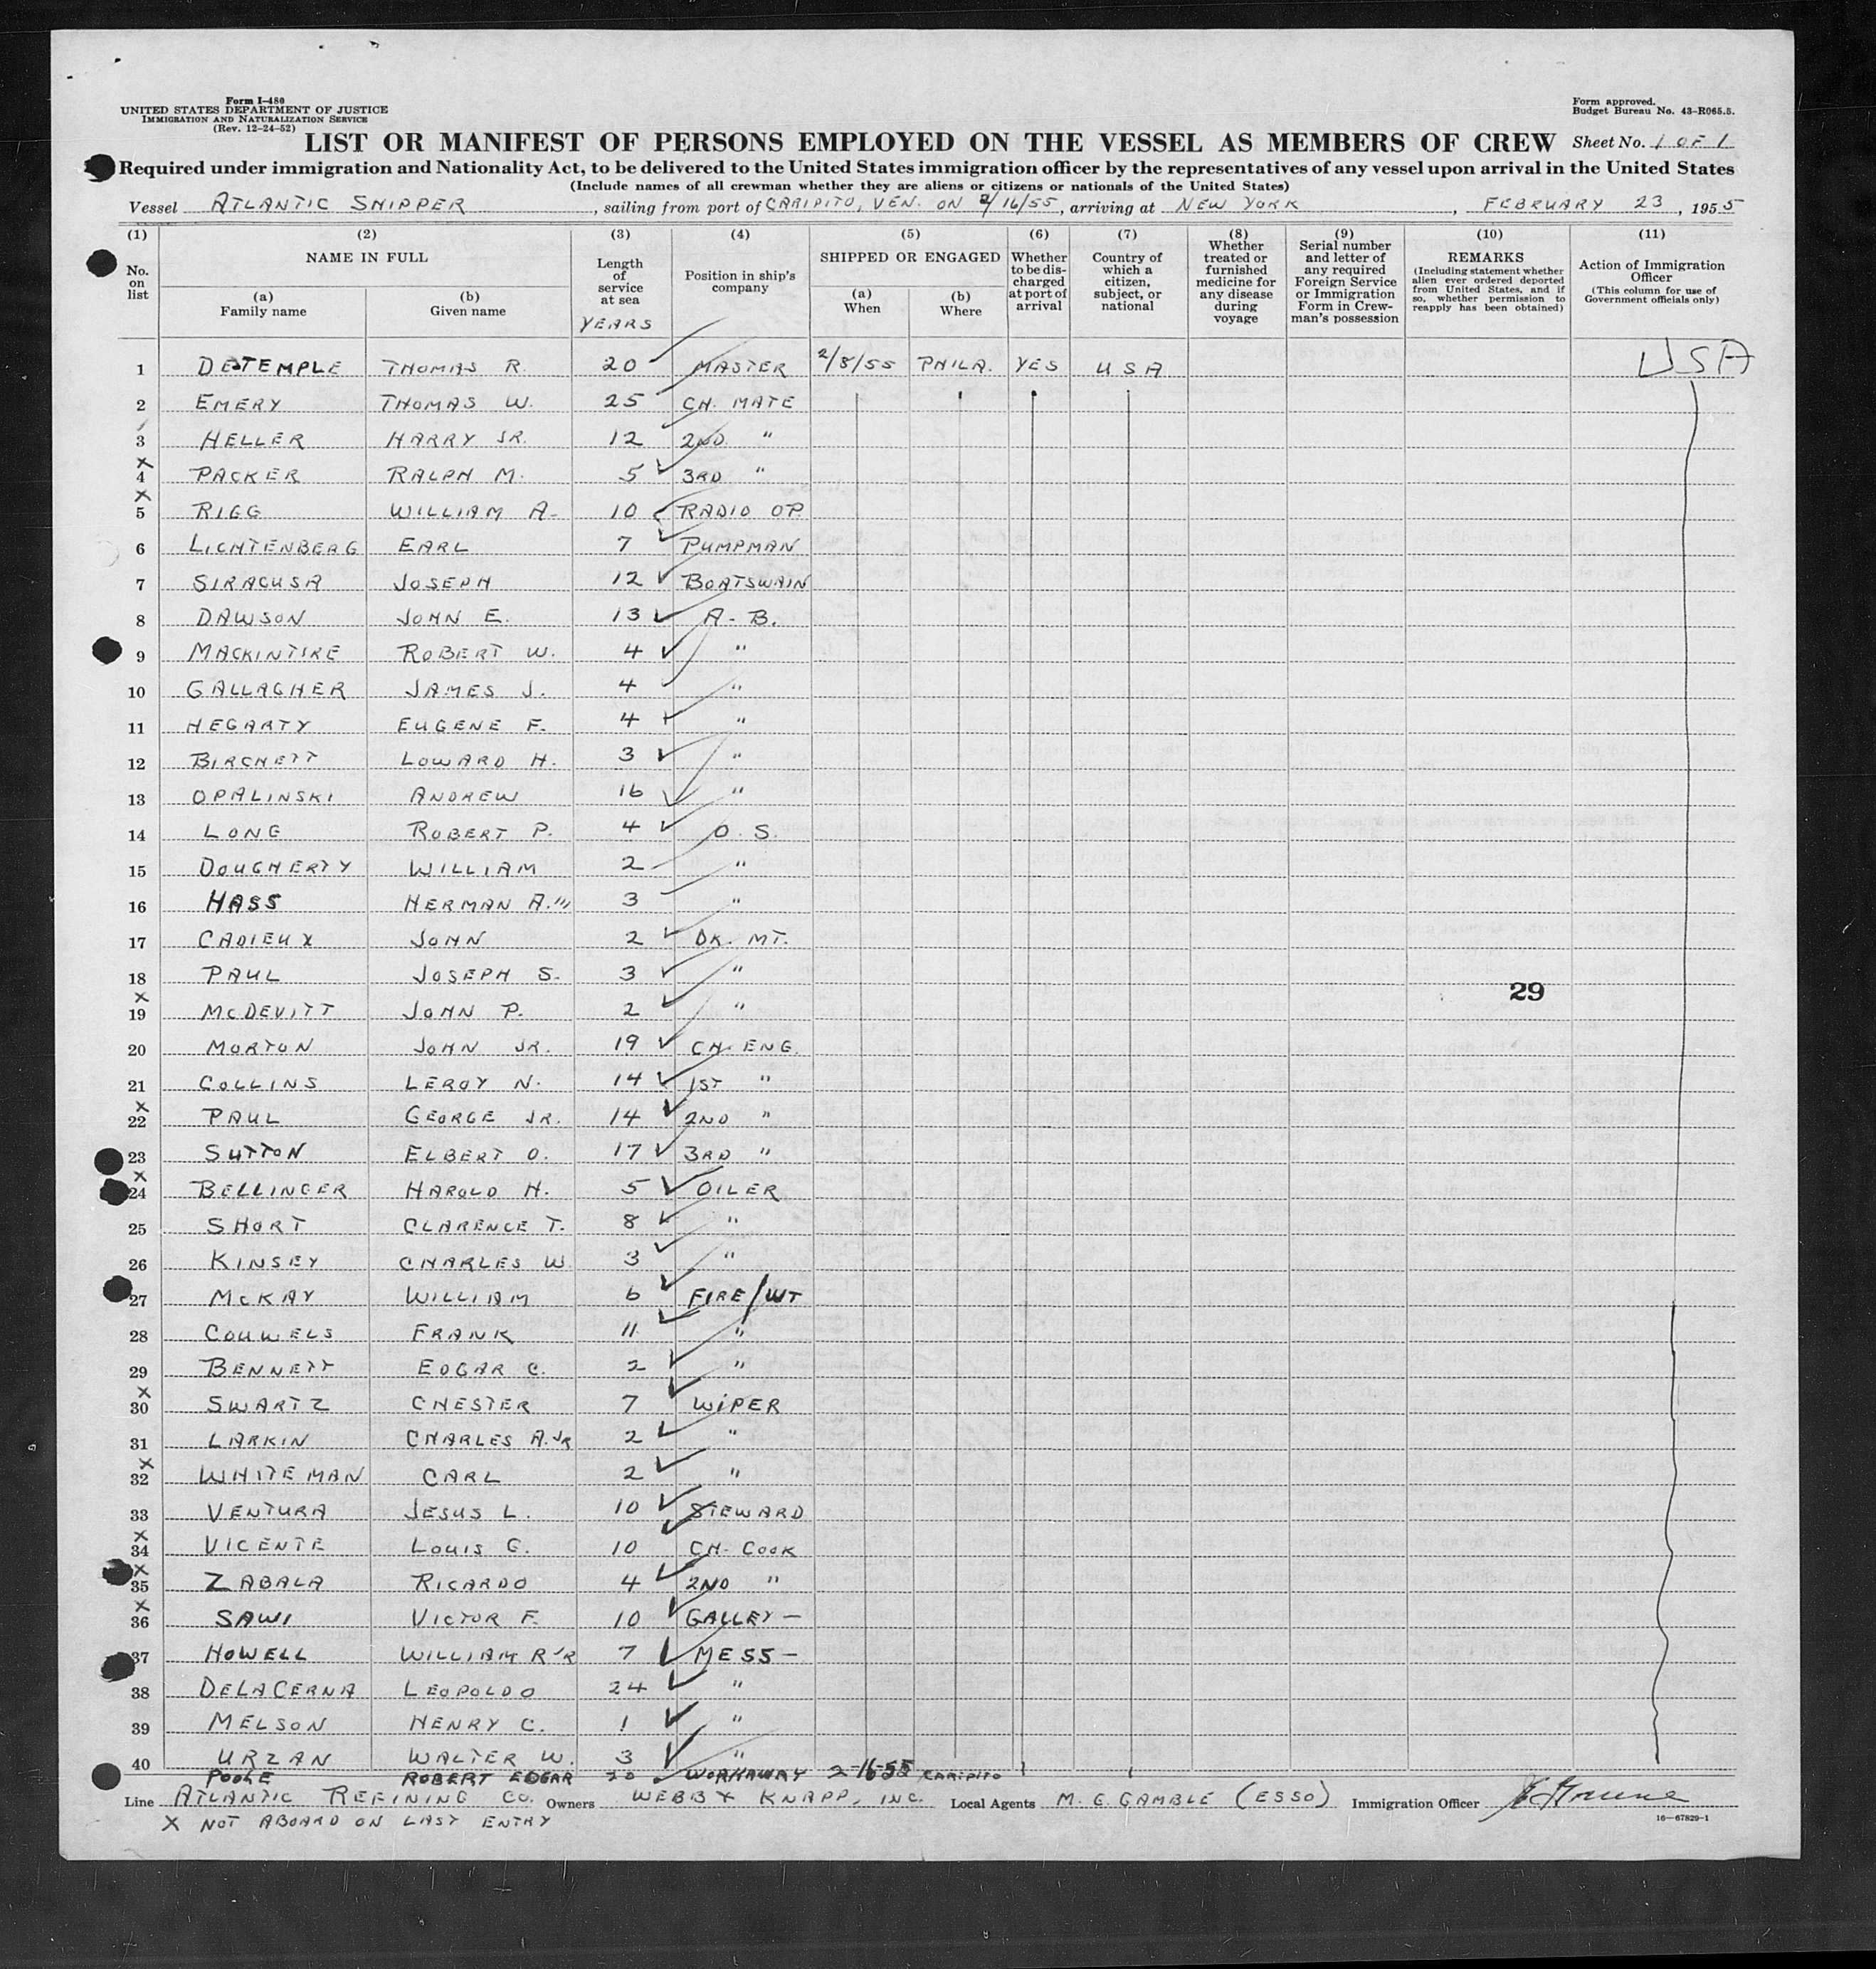 Form I-480
UNITED STATES DEPARTMENT OF JUSTICE
IMMIGRATION AND NATURALIZATION SERVICE
(Rev. 12-24-52)
Form approved.
Budget Bureau No. 43-R065.5.
LIST OR MANIFEST OF PERSONS EMPLOYED ON THE VESSEL AS MEMBERS OF CREW Sheet No. 1 OF 1
Required under immigration and Nationality Act, to be delivered to the United States immigration officer by the representatives of any vessel upon arrival in the United States
(Include names of all crewman whether they are aliens or citizens or nationals of the United States)
Vessel ATLANTIC SHIPPER, sailing from port of CARIPITO, VEN. ON 2/16/55, arriving at NEW YORK, FEBRUARY 23, 1955
(1) No. on list
(2) NAME IN FULL
(a) Family name
(b) Given name
(3) Length of service at sea YEARS
(4) Position in ship's company
(5) SHIPPED OR ENGAGED
(a) When
(b) Where
(6) Whether to be discharged at port of arrival
(7) Country of which a citizen, subject, or national
(8) Whether treated or furnished medicine for any disease during voyage
(9) Serial number and letter of any required Foreign Service or Immigration Form in Crewman's possession
(10) REMARKS (Including statement whether alien ever ordered deported from United States, and if so, whether permission to reapply has been obtained)
(11) Action of Immigration Officer (This column for use of Government officials only)
1 DETEMPLE THOMAS R. 20 MASTER 2/8/55 PHILA. YES USA USA
2 EMERY THOMAS W. 25 CH. MATE
3 HELLER HARRY JR. 12 2ND "
X 4 PACKER RALPH M. 5 3RD "
X 5 RIGG WILLIAM A. 10 RADIO OP.
6 LICHTENBERG EARL 7 PUMPMAN
7 SIRACUSA JOSEPH 12 BOATSWAIN
8 DAWSON JOHN E. 13 A-B.
9 MACKINTIRE ROBERT W. 4 "
10 GALLAGHER JAMES J. 4 "
11 HEGARTY EUGENE F. 4 "
12 BIRCHETT LOWARD H. 3 "
13 OPALINSKI ANDREW 16 "
14 LONG ROBERT P. 4 O. S.
15 DOUGHERTY WILLIAM 2 "
16 HASS HERMAN A. III 3 "
17 CADIEUX JOHN 2 DK. MT.
18 PAUL JOSEPH S. 3 "
29
X 19 MCDEVITT JOHN P. 2 "
20 MORTON JOHN JR. 19 CH. ENG.
21 COLLINS LEROY N. 14 1ST "
X 22 PAUL GEORGE JR. 14 2ND "
23 SUTTON ELBERT O. 17 3RD "
X 24 BELLINGER HAROLD H. 5 OILER
25 SHORT CLARENCE T. 8 "
26 KINSEY CHARLES W. 3 "
27 MCKAY WILLIAM 6 FIRE/WT
28 COUWELS FRANK 11 "
29 BENNETT EDGAR C. 2 "
X 30 SWARTZ CHESTER 7 WIPER
31 LARKIN CHARLES A. JR 2 "
X 32 WHITEMAN CARL 2 "
33 VENTURA JESUS L. 10 STEWARD
X 34 VICENTE LOUIS G. 10 CH. COOK
X 35 ZABALA RICARDO 4 2ND "
X 36 SAWI VICTOR F. 10 GALLEY-
37 HOWELL WILLIAM R JR 7 MESS-
38 DELACERNA LEOPOLDO 24 "
39 MELSON HENRY C. 1 "
40 URZAN WALTER W. 3 "
POOLE ROBERT EDGAR 20 WORKAWAY 2-16-55 CARIPITO
Line ATLANTIC REFINING CO. Owners WEBB & KNAPP, INC. Local Agents M. G. GAMBLE (ESSO) Immigration Officer
16-67829-1
X NOT ABOARD ON LAST ENTRY